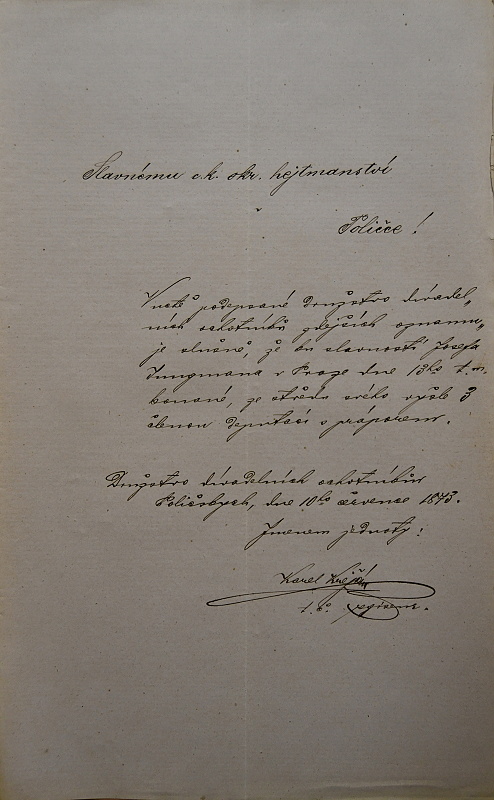 Slavnému c.k. okr. hejtmanství
Poličce!
podepsané Družstvo divadel„
ních ochotníků zdejších oznamu„
je slušně, že ku slavnosti Josefa
Jungmana v Praze dne 13ho t. m.
konané, ze středu svého vyšle 3
členou deputaci s práporem.
Družstvo divadelních ochotníkův
Poličských, dne 10ho července 1873.
Jmenem jednoty:
Karel
t. č. regisseur.